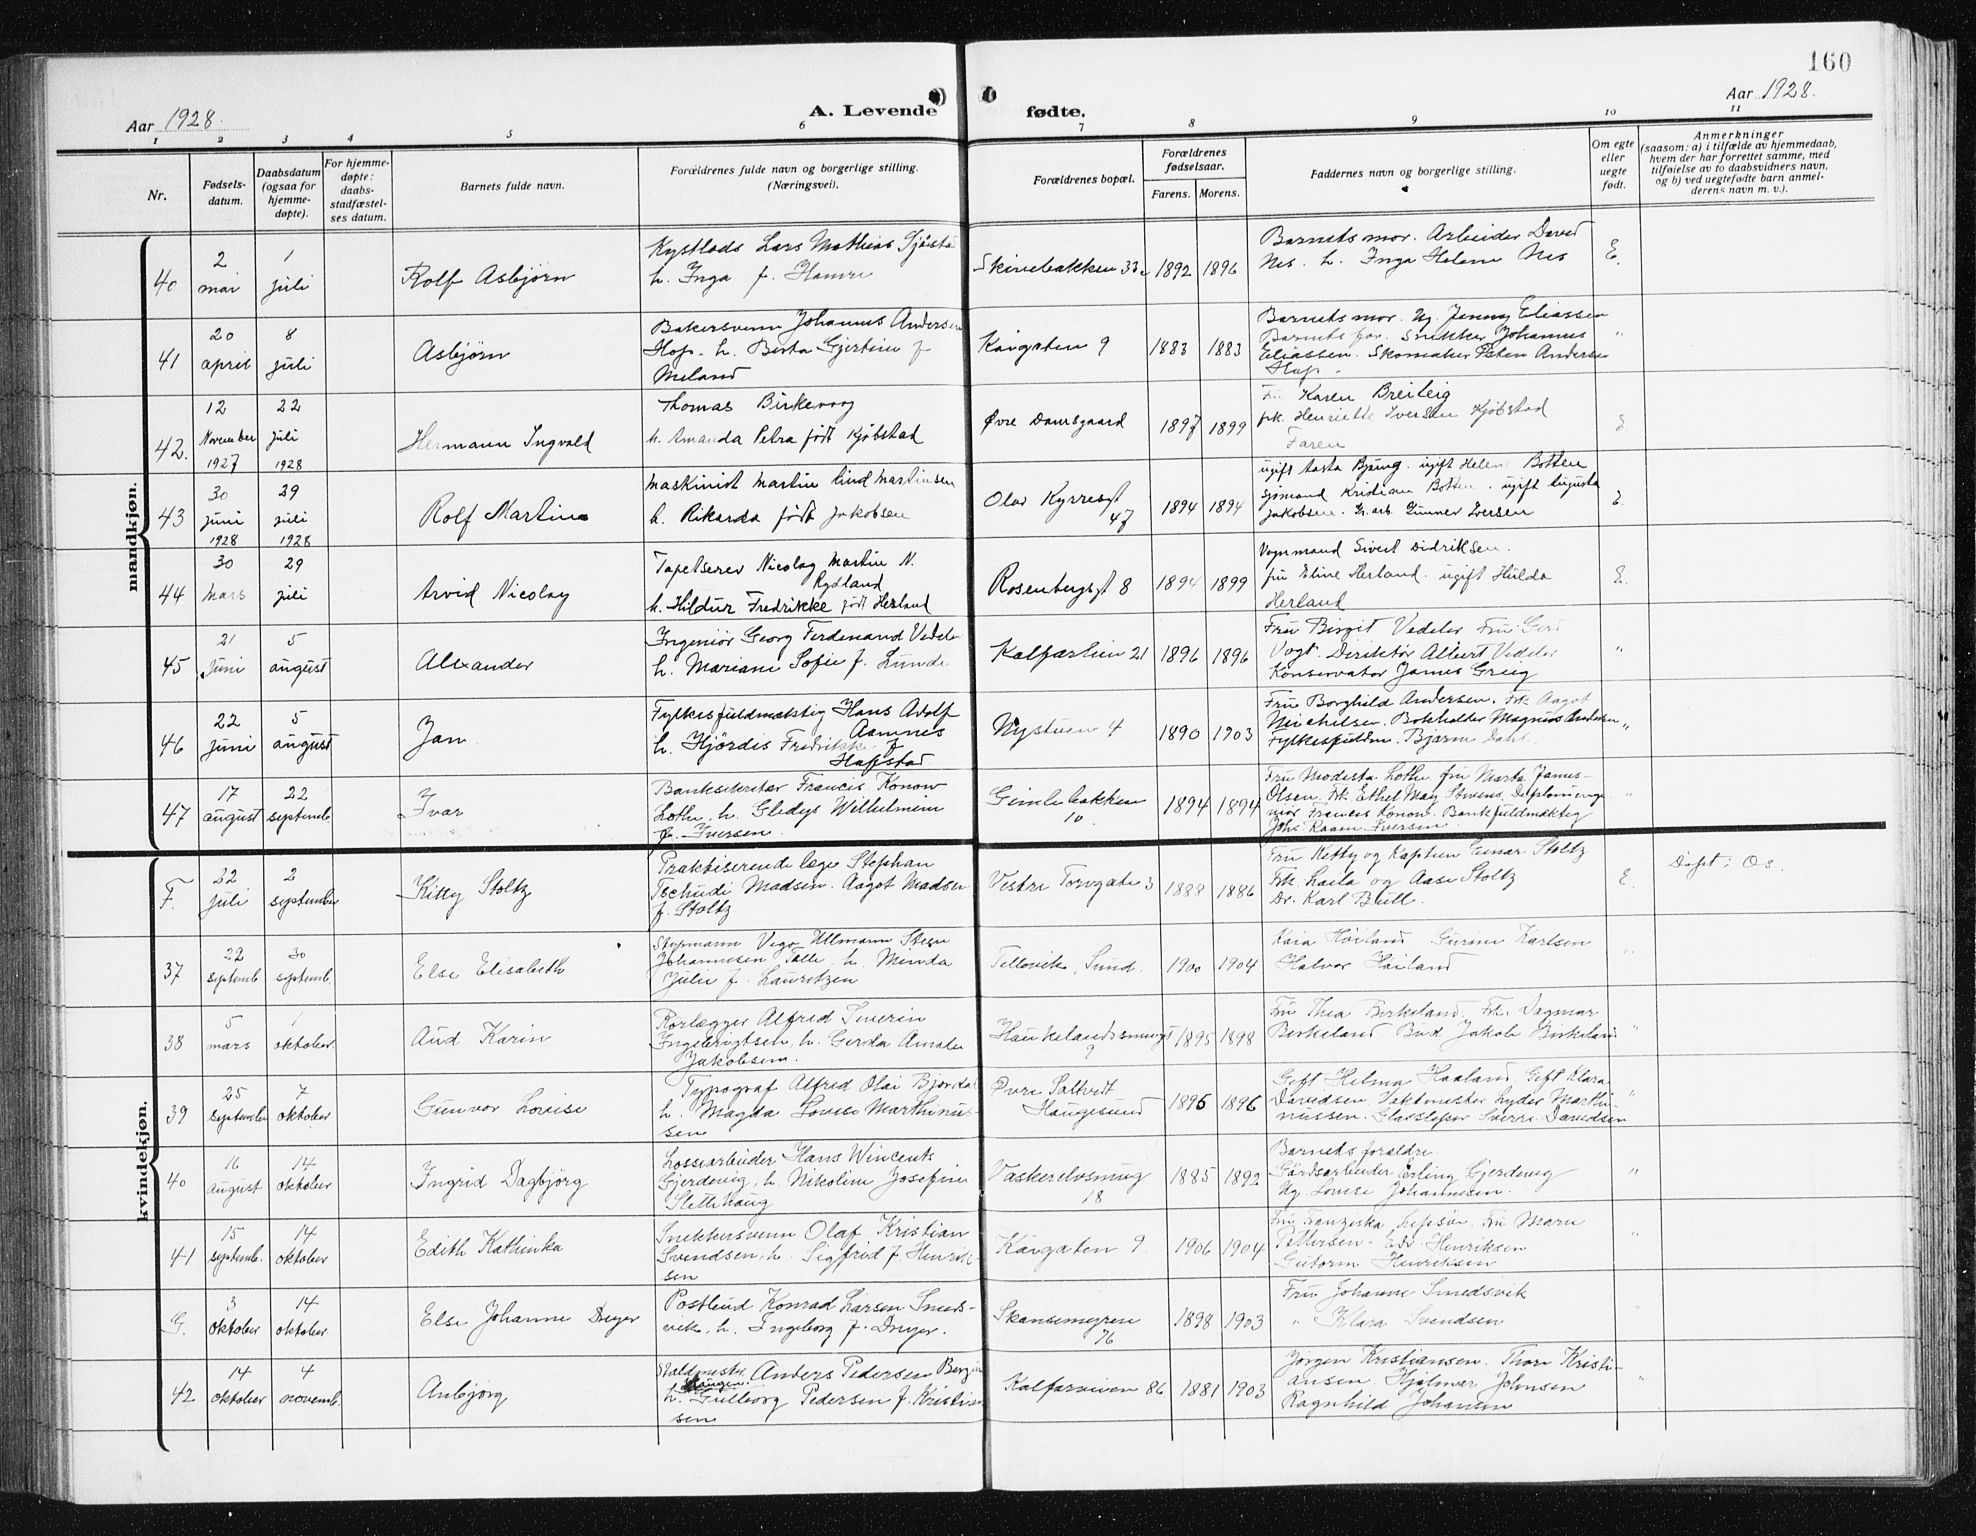 160
Aar 1928.
A. Levende fødte.
Aar 1928.
1 2 3 4 5 6 7 8 9 10 11
Nr.
Fødsels-
datum.
Daabsdatum
(ogsaa for
hjemme-
døpte).
For hjemme-
døpte:
daabs-
stadfæstel-
ses datum.
Barnets fulde navn.
Forældrenes fulde navn og borgerlige stilling.
(Næringsvei).
Forældrenes bopæl.
Forældrenes
fødselsaar.
Farens. Morens.
Faddernes navn og borgerlige stilling.
Om egte
eller
uegte
født.
Anmerkninger
(saasom: a) i tilfælde av hjemmedaab,
hvem der har forrettet samme, med
tilføielse av to daabsvidners navn,
og b) ved uegtefødte barn anmel-
derens navn m. v.).
mandkjøn.
40
2 mai
1 juli
Rolf Asbjørn
Lars Mathias
h. Inga f. Hamre
1892 1896
Barnets mor. Arbeider David
Nes. h. Inga Helene Nes
E.
41
20 april
8 juli
Asbjørn
Bakersvenn Johannes Andersen
Hop. h. Berta Gjertine f.
Meland
Kaigaten 9
1883 1883
Barnets mor. Ug. Jenny Eliassen
Barnets far. Snekker Johannes
Eliassen. Skomaker Andersen
Hop.
"
42.
12 November 1927
22 juli 1928
Hermann Ingvald
Thomas Birkevog
h. Amanda Petra født Kjøbstad
Øvre Damsgaard
1897 1899
Fru Karen Breileig
frk. Henriette Iversen Kjøbstad
Faren
E
43
30 juni 1928
29 juli 1928
Rolf Martin
Maskinist Martin Lind Martinsen
h. Rikarda født Jakobsen
Olav Kyrresgt
47
1894 1894
ugift Aasta Bjung. ugift Helene Botten
sjømand Kristian Botten. ugift Augusta
Jakobsen. Gunner Iversen
E.
44
30 mars
29 juli
Arvid Nicolay
Tapetserer Nicolay Martin N.
Rydland
h. Hildur Fredrikke født Herland
Rosenbergsgt 8
1894 1899
Vognmand Sivert Didriksen.
fru Eline Herland. ugift Hulda
Herland
E.
45
21 Juni
5 august
Alexander
Ingeniør Georg Ferdinand Vedeler
h. Mariane Sofie f. Lunde
Kalfarlien 21
1896 1896
Fru Birgit Vedeler Fru Gerd
Vogt. Direktør Albert Vedeler
Konservator James Grieg
"
46
22 juni
5 august
Jan
Fylkesfuldmektig Hans Adolf
Aamnes
h. Hjördis Fredrikke f.
Hafstad
Nystuen 4
1890 1903
Fru Borghild Andersen. Frk. Aagot
Michelsen. Bokholder Magnus Andersen
Fylkesfuldm. Bjarne Dahl.
"
47
17 august
22 septemb.
Ivar
Banksekretær Francis Konow
Lothe, h. Gladys Wilhelmine
f. Iversen.
Gimlebakken
10
1894 1894
Fru Modesta Lothe fru Marta James-
Olsen. Frk. Ethel May Stevens. Diplominge-
niør Francis Konow. Bankfuldmektig
Johs. Raaen Iversen
"
kvindekjøn.
F.
22 juli
2 september
Kitty Stoltz
Praktiserende læge Stephan
Tschudi Madsen. Aagot Madsen
f. Stoltz
Vestre Torvgate 3
1888 1886
Fru Kitty og Kaptein Einar Stoltz
Frk. Laila og Aase Stoltz
Dr. Karl Bull.
E.
Døpt i Os.
37
22 septemb
30 septemb.
Else Elisabeth
Styrmann Vigo Ullmann Stein
Johannesen Talle, h. Minda
Julie f. Lauritzen
Tellevik, Sund.
1900 1904
Kaia Höiland Gurine Karlsen
Halvor Höiland
"
38
5 mars
1 oktober
Aud Karin
Rørlægger Alfred Severin
Ingebrigtsen, h. Gerda Amalie
Jakobsen.
Haukelandssmuget
9
1895 1898
Fru Thea Birkeland. Frk. Dagmar
Birkeland. Bud Jakob Birkeland
"
39
25 september
7 oktober
Gunvor Lovise
Typograf Alfred Olai Bjordal
h. Magda Lovise Marthinus-
sen
Øvre Saltveit
Haugesund
1896 1896
Gift Helma Haaland. Gift Klara
Davidsen. Vaktmester Lyder Marthi-
nussen. Glassliper Sverre Davidsen
"
40
16 august
14 oktober
Ingrid Dagbjörg
Lossearbeider Hans Wincents
Gjerdevig, h. Nikoline Josefine
Slettehaug
Vaskerelvsmug
18
1885 1892
Barnets foraldre.
Gårdsarbeider Erling Gjerdevig
Ug. Lovise Johannesen.
"
41
15 septemb.
14 oktober
Edith Kathinka
Snekkersvenn Olaf Kristian
Svendsen, h. Sigfrid f. Henrik-
sen
Kaigaten 9
1906 1904
Fru Franziska Fru Marn
Pettersen. Edv. Henriksen
Gutorm Henriksen
"
G.
3 oktober
14 oktober
Else Johanne Dreyer
Postbud Konrad Larsen Smeds-
vik, h. Ingeborg f. Dreyer.
Skansemyren
76
1898 1903
Fru Johanne Smedsvik
" Klara Svendsen
"
42
14 oktober
4 novemb.
Anbjørg
Staldmester Anders Pedersen
h. Gulborg Pedersen f. Kristian-
sen
Kalfarveien 86
1881 1903
Jørgen Kristiansen. Thora Kristi-
ansen. Hjalmar Johnsen
Ragnhild Johansen
"